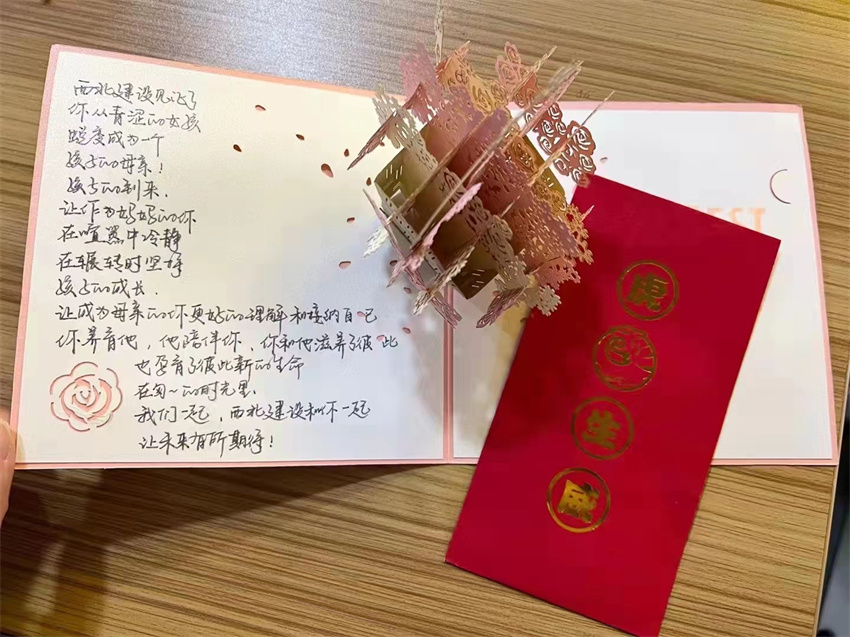 西北建设见证了
你从青涩的女孩
蜕变成为一个
孩子的母亲！
孩子的到来，
让作为妈妈的你
在喧嚣中冷静
在辗转时坚持
孩子的成长，
让成为母亲的你更好的理解和接纳自己
你养育他，他陪伴你，你和他滋养了彼此
也孕育了彼此新的生命
在每一的时光里，
我们一起，西北建设和你一起
让未来有所期待！
EST
虎
虎
生
威